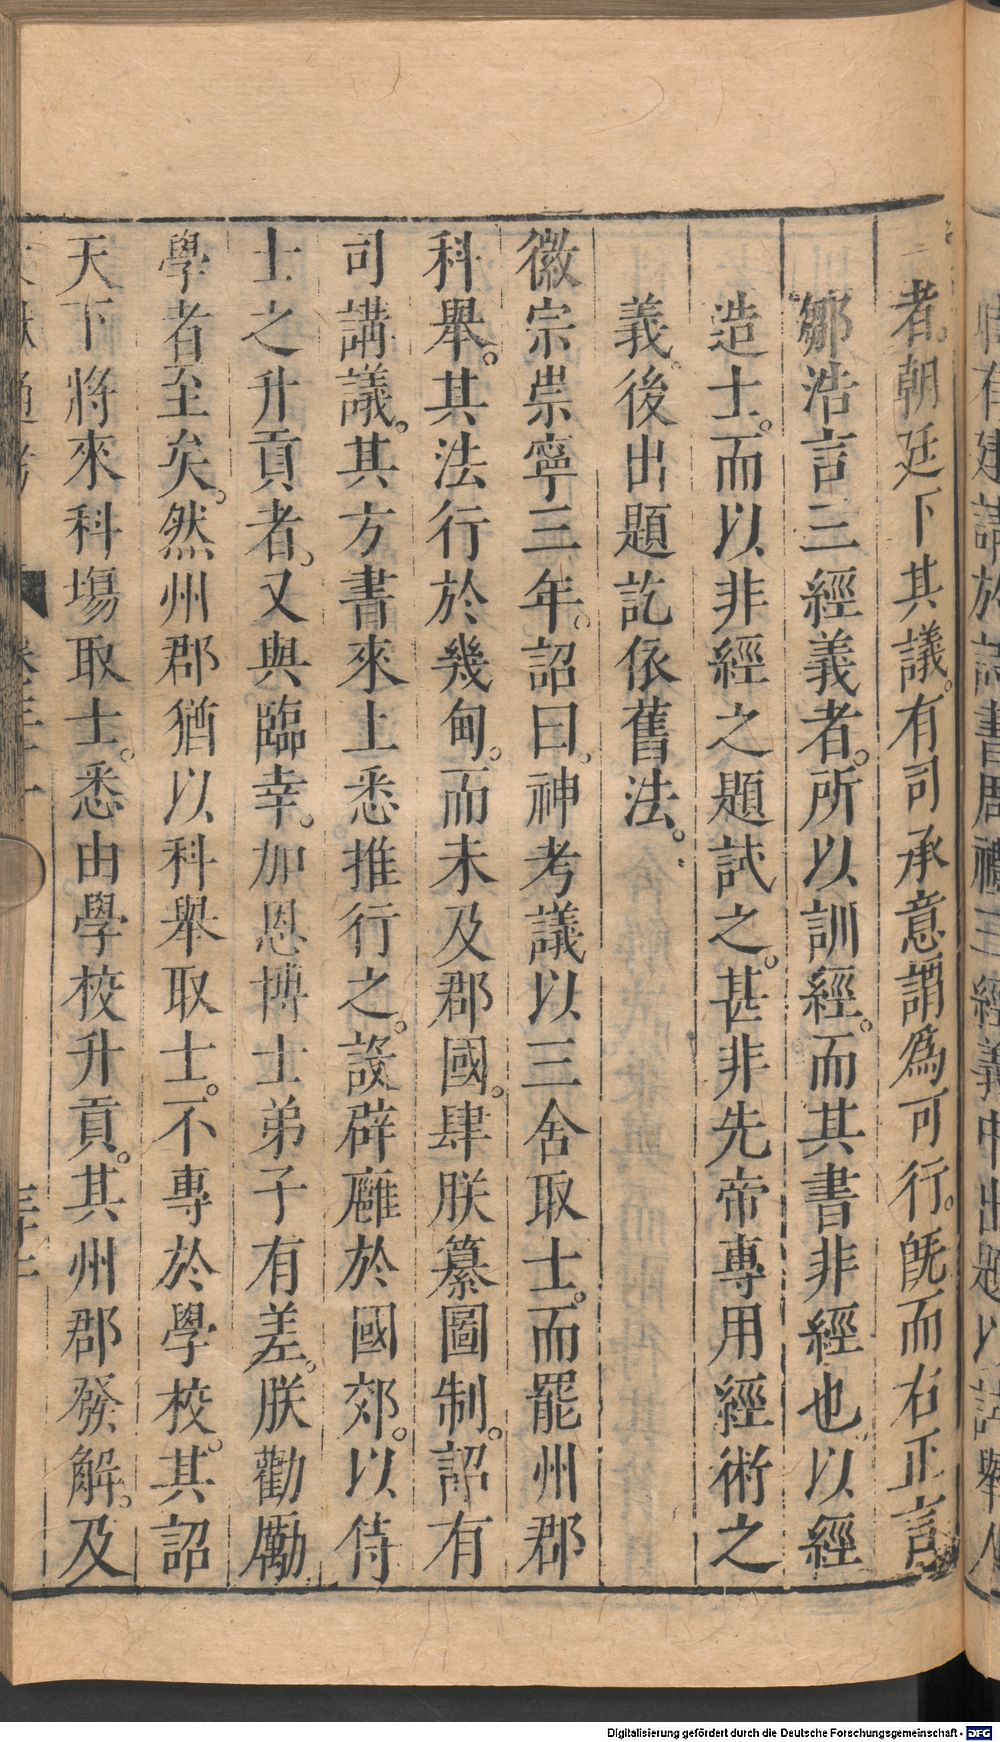 者。朝廷下其議。有司承意謂爲可行。旣而右正言
鄒浩言三經義者。所以訓經。而其書非經也。以經
造士。而以非經之題試之。甚非先帝專用經術之
義。後出題訖依舊法。
徽宗崇寧三年。詔曰。神考議以三舍取士。而罷州郡
科舉。其法行於幾甸。而未及郡國。肆朕纂圖制。詔有
司講議。其方書來上悉推行之。設辟廱於國郊。以待
士之升貢者。又與臨幸。加恩博士弟子有差。朕勸勵
學者至矣。然州郡猶以科舉取士。不專於學校。其詔
天下將來科塲取士。悉由學校升貢。其州郡發解。及
Digitalisierung gefördert durch die Deutsche Forschungsgemeinschaft - DFG